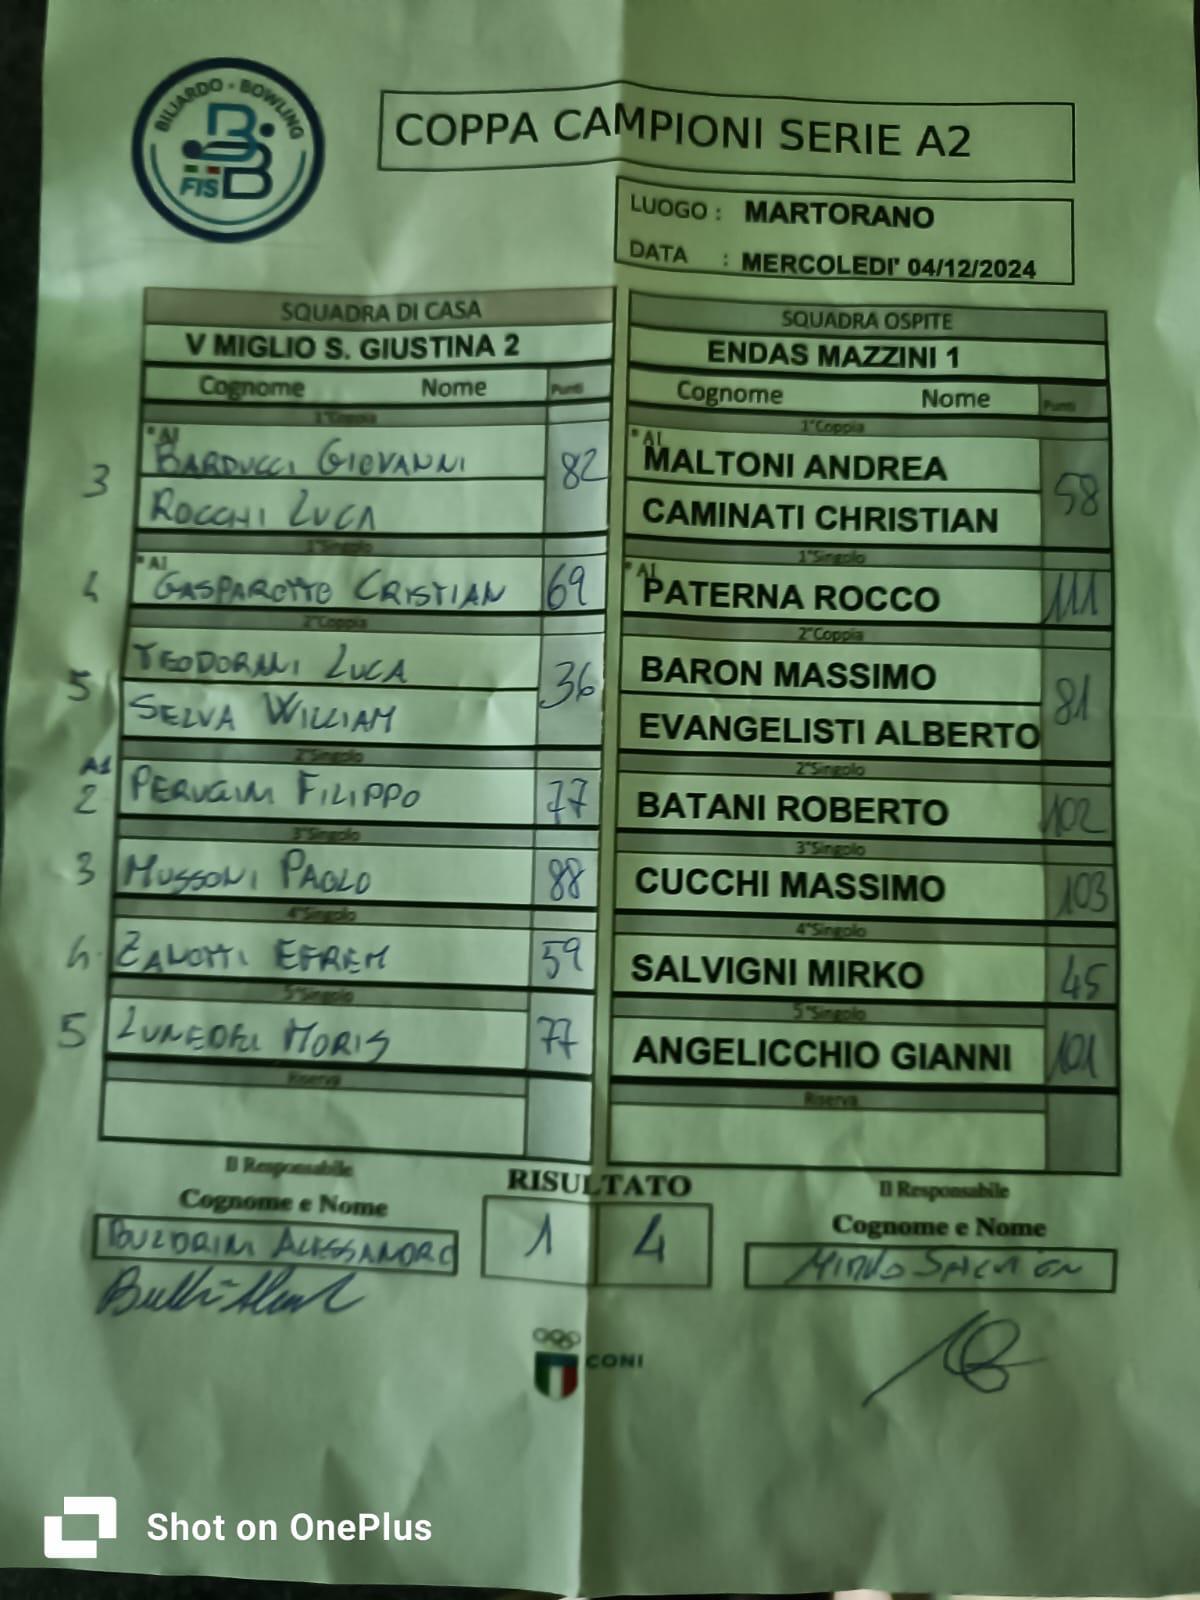 BILIARDO - BOWLING
FISBB
COPPA CAMPIONI SERIE A2
LUOGO : MARTORANO
DATA : MERCOLEDI' 04/12/2024
SQUADRA DI CASA
V MIGLIO S. GIUSTINA 2
Cognome Nome Punti
1°Coppia
*A1
3 BARDUCCI GIOVANNI 82
ROCCHI LUCA
1°Singolo
*A1
4 GASPAROTTO CRISTIAN 69
2°Coppia
TEODORANI LUCA 36
5 SELVA WILLIAM
2°Singolo
A1
2 PERUGINI FILIPPO 77
3°Singolo
3 MUSSONI PAOLO 88
4°Singolo
4 ZANOTTI EFREM 59
5°Singolo
5 LUNEDEI MORIS 77
Riserva
SQUADRA OSPITE
ENDAS MAZZINI 1
Cognome Nome Punti
1°Coppia
*A1
MALTONI ANDREA 58
CAMINATI CHRISTIAN
1°Singolo
*A1
PATERNA ROCCO 111
2°Coppia
BARON MASSIMO 81
EVANGELISTI ALBERTO
2°Singolo
BATANI ROBERTO 102
3°Singolo
CUCCHI MASSIMO 103
4°Singolo
SALVIGNI MIRKO 45
5°Singolo
ANGELICCHIO GIANNI 101
Riserva
Il Responsabile
Cognome e Nome
ALESSANDRO
RISULTATO
1 4
Il Responsabile
Cognome e Nome
CONI
Shot on OnePlus